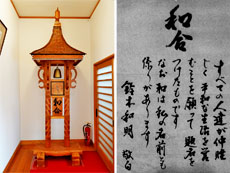 和合
和合
すべての人達が仲睦
じく 平和な生活を営
むことを願って 殿名を
つけたものです
なお 和は私の名前とも
係りがあります
鈴木和明 敬白